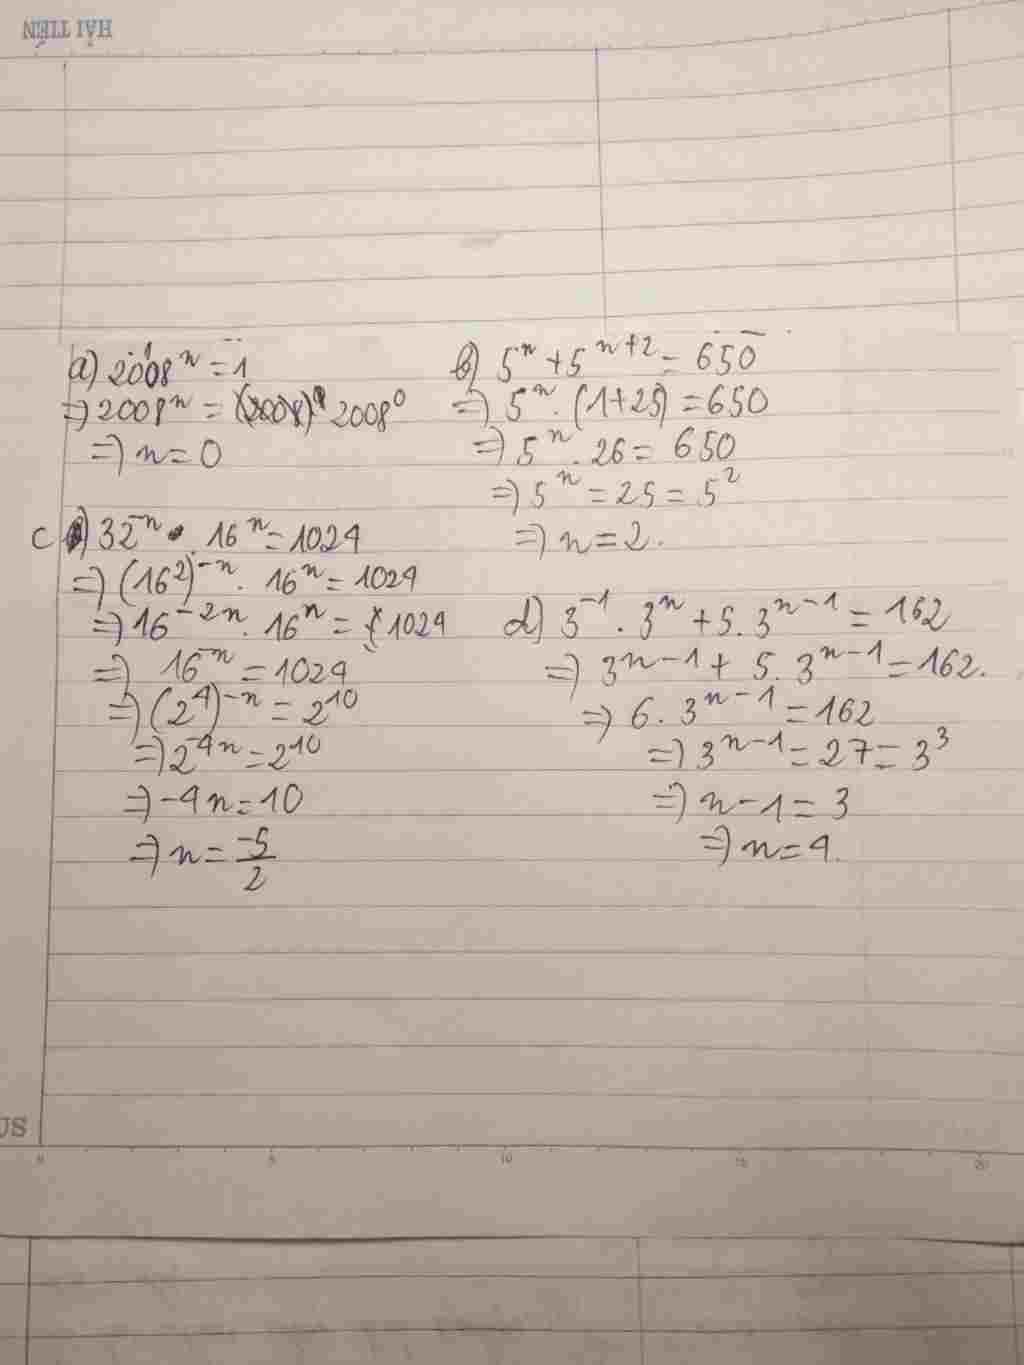 HẢI TIẾN
a) 2008^n = 1
=) 2008^n = 2008^0
=) n = 0
b) 5^n + 5^{n+2} = 650
=) 5^n . (1+25) = 650
=) 5^n . 26 = 650
=) 5^n = 25 = 5^2
=) n = 2.
c) 32^{-n} . 16^n = 1024
=) (16^2)^{-n} . 16^n = 1024
=) 16^{-2n} . 16^n = 1024
=) 16^{-n} = 1024
=) (2^4)^{-n} = 2^{10}
=) 2^{-4n} = 2^{10}
=) -4n = 10
=) n = \frac{-5}{2}
d) 3^{-1} . 3^n + 5. 3^{n-1} = 162
=) 3^{n-1} + 5. 3^{n-1} = 162.
=) 6. 3^{n-1} = 162
=) 3^{n-1} = 27 = 3^3
=) n-1 = 3
=) n = 4.
US
0 5 10 15 20